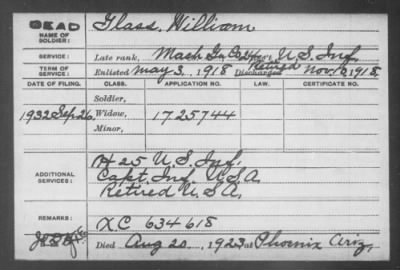 DEAD
NAME OF SOLDIER: Glass, William
SERVICE: Late rank, Mach. Gn. Co. 24 Reg't U.S. Inf.
Retired
TERM OF SERVICE: Enlisted May 3, 1918 Discharged Nov. 10, 1918.
DATE OF FILING. CLASS. APPLICATION NO. LAW. CERTIFICATE NO.
Soldier,
1932 Sep 26 Widow, 1725744
Minor,
H 25 U.S. Inf.
ADDITIONAL SERVICES: Capt. Inf. U.S.A.
Retired U.S.A.
REMARKS: XC 634 618
Died Aug 20, 1923 at Phoenix Ariz.